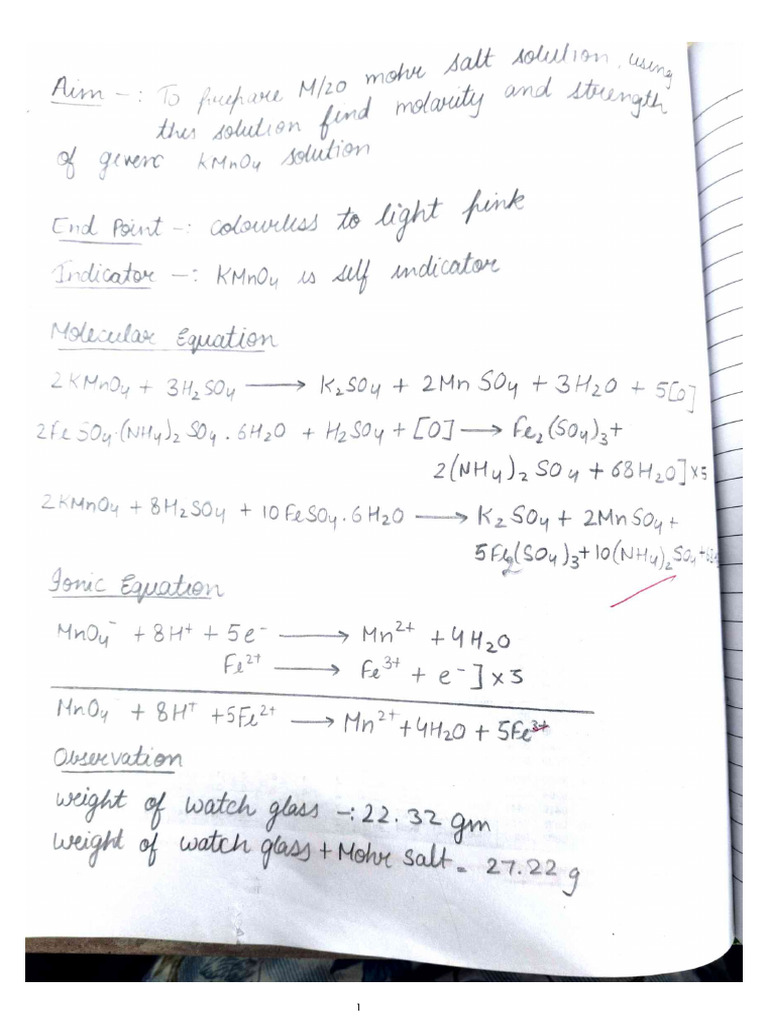 Aim -: To prepare M/20 mohr salt solution, using
this solution find molarity and strength
of given KMnO4 solution
End Point -: colourless to light pink
Indicator -: KMnO4 is self indicator
Molecular Equation
2KMnO4 + 3H2SO4 ⟶ K2SO4 + 2MnSO4 + 3H2O + 5[O]
2FeSO4·(NH4)2 SO4 . 6H2O + H2SO4 + [O] ⟶ Fe2(SO4)3 +
2(NH4)2 SO4 + 68H2O] x5
2KMnO4 + 8H2SO4 + 10FeSO4 . 6H2O ⟶ K2SO4 + 2MnSO4 +
5Fe2(SO4)3 + 10(NH4)2 SO4 +
Ionic Equation
MnO4⁻ + 8H⁺ + 5e⁻ ⟶ Mn²⁺ + 4H2O
Fe²⁺ ⟶ Fe³⁺ + e⁻ ] x 5
MnO4⁻ + 8H⁺ + 5Fe²⁺ ⟶ Mn²⁺ + 4H2O + 5Fe³⁺
Observation
weight of watch glass -: 22.32 gm
weight of watch glass + Mohr salt = 27.22 g
1